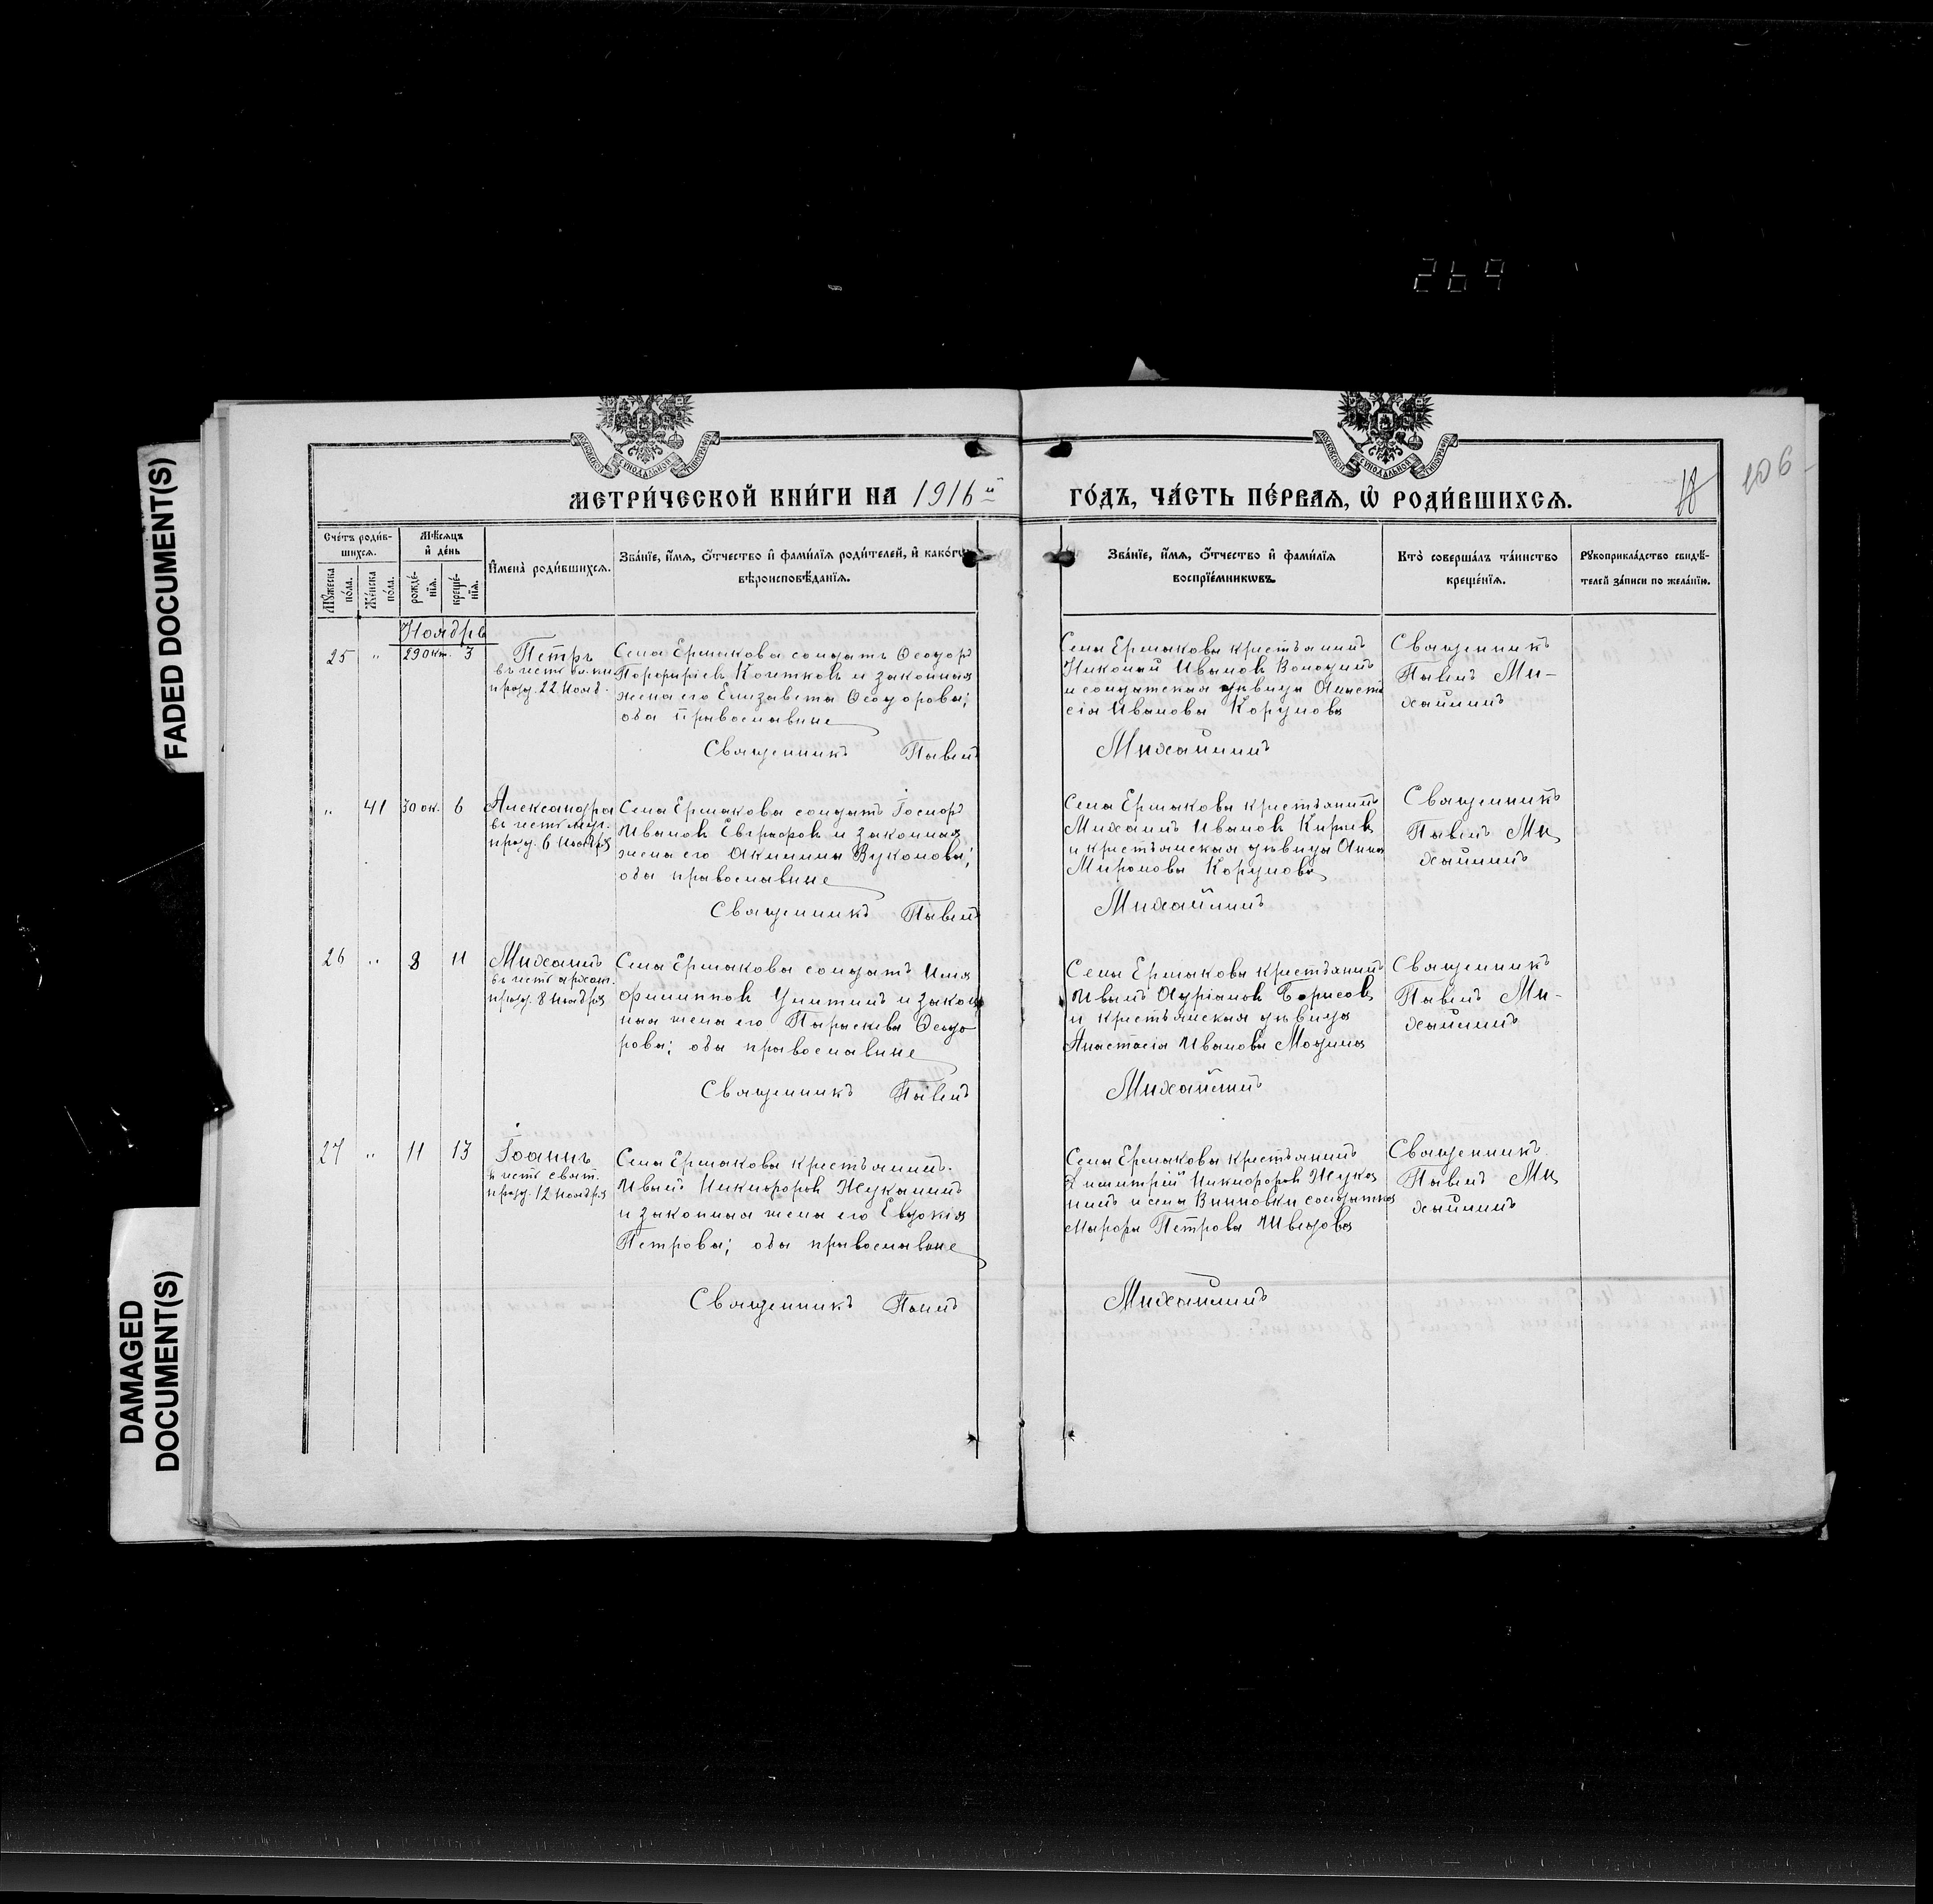 269
FADED DOCUMENT(S)
DAMAGED
DOCUMENT(S)
106
МОСКОВСКОЙ СѴНОДАЛЬНОЙ ТИПОГРАФІИ
МОСКОВСКОЙ СѴНОДАЛЬНОЙ ТИПОГРАФІИ
МЕТРИ́ЧЕСКОЙ КНИ́ГИ НА 1916й
ГО́ДЪ, ЧА́СТЬ ПЕ́РВАѦ, Ѽ РОДИ́ВШИХСѦ.
Сче́тъ роди́в-
шихся.
Мꙋ́жеска
по́ла.
Же́нска
по́ла.
Мѣ́сяцъ
и҆ де́нь
рожде́-
нїя.
креще́-
нїя.
И҆мена̀ роди́вшихся.
Зва́нїе, и҆́мя, ѻ҆́тчество и҆ фами́лїя роди́телей, и҆ како́гѡ
вѣроисповѣ́данїя.
Зва́нїе, и҆́мя, ѻ҆́тчество и҆ фами́лїя
воспрїе́мникѡвъ.
Кто̀ соверша́лъ та́инство
креще́нїя.
Рꙋкоприкла́дство свидѣ́-
телей за́писи по жела́нїю.
Ноября
25 " 29 окт. 3
Петръ
въ честь
празд. 22 Нояб.
Села Ермакова солдатъ Ѳеодоръ
Порфиріевъ Кочтковъ и законная
жена его Елизавета Ѳеодорова;
оба православные
Священникъ Павелъ
Села Ермакова крестьянинъ
Николай Ивановъ Володинъ
и солдатская дѣвица Анаста
сія Иванова Корунова
Михайлинъ
Священникъ
Павелъ Ми-
хайлинъ
" 41 30 ок. 6
Александра
въ честь муч.
празд. 6 Ноября
Села Ермакова солдатъ Іосифъ
Ивановъ Евграфовъ и законная
жена его Акилина Вуколова;
оба православные
Священникъ Павелъ
Села Ермакова крестьянинъ
Михаилъ Ивановъ
и крестьянская дѣвица Анна
Миронова Корунова
Михайлинъ
Священникъ
Павелъ Ми
хайлинъ
26 " 8 11
Михаилъ
въ честь архан.
празд. 8 Ноября
Села Ермакова солдатъ Илья
Филипповъ и закон
ная жена его Параскева Ѳеодо
рова; оба православные
Священникъ Павелъ
Села Ермакова крестьянинъ
Иванъ Адріановъ Борисовъ
и крестьянская дѣвица
Анастасія Иванова
Михайлинъ
Священникъ
Павелъ Ми-
хайлинъ
27 " 11 13
Іоаннъ
въ честь свят.
празд. 12 Ноября
Села Ермакова крестьянинъ
Иванъ Никифоровъ Жукалинъ
и законная жена его Евдокія
Петрова; оба православные
Священникъ Павелъ
Села Ермакова крестьянинъ
Димитрій Никифоровъ Жука
линъ и села Винновки солдатка
Марфа Петрова Шведова
Михайлинъ
Священникъ
Павелъ Ми
хайлинъ